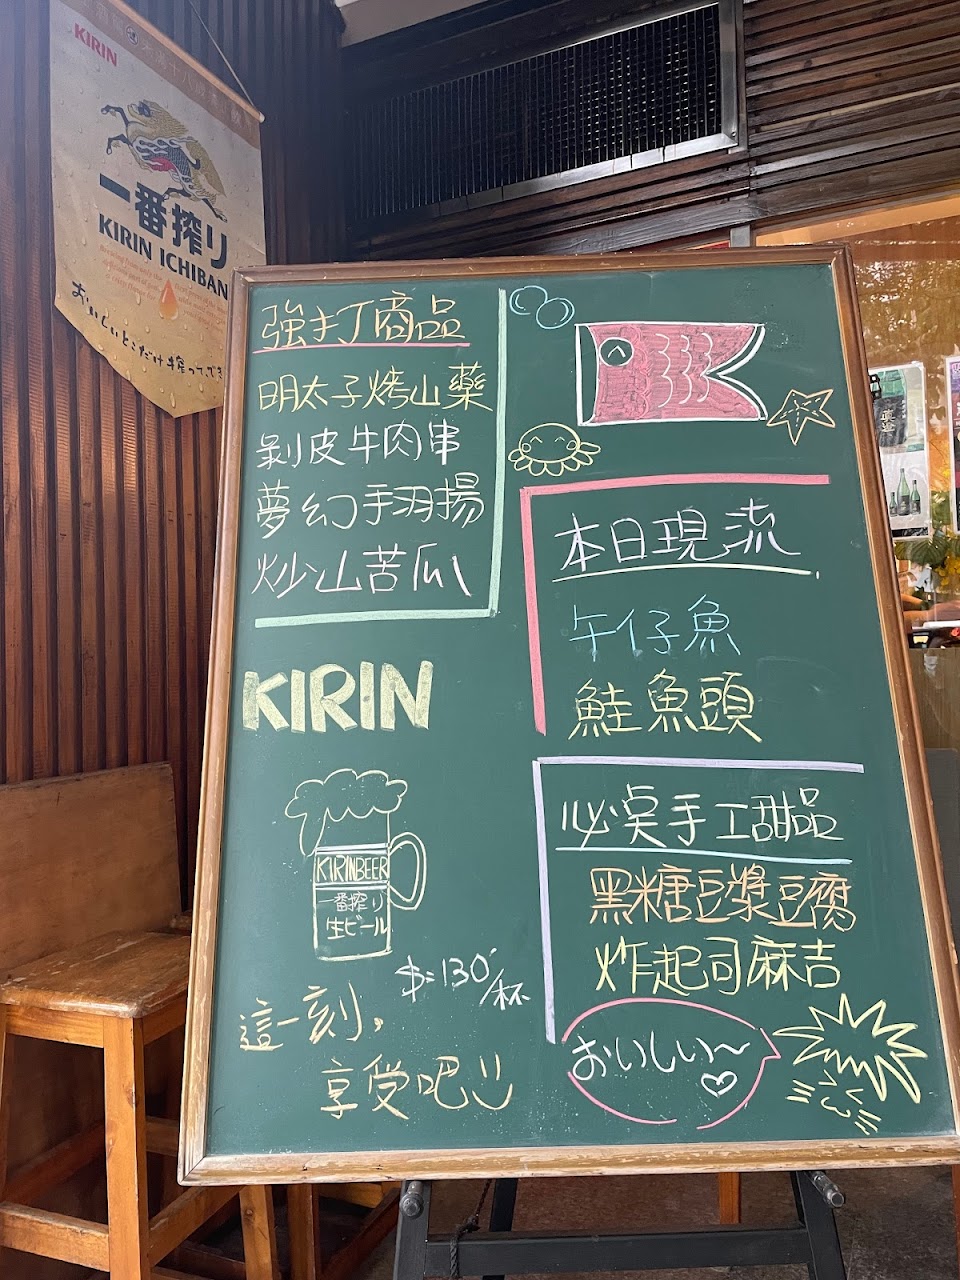 KIRIN
一番搾り
KIRIN ICHIBAN
おいしいとこだけ搾ってで
強打商品
明太子烤山藥
剝皮牛肉串
夢幻手羽揚
炒山苦瓜
本日現流
午仔魚
鮭魚頭
KIRIN
KIRINBEER
一番搾り
生ビール
$:130/杯
這一刻,
享受吧
必點手工甜品
黑糖豆漿豆腐
炸起司麻吉
おいしい〜